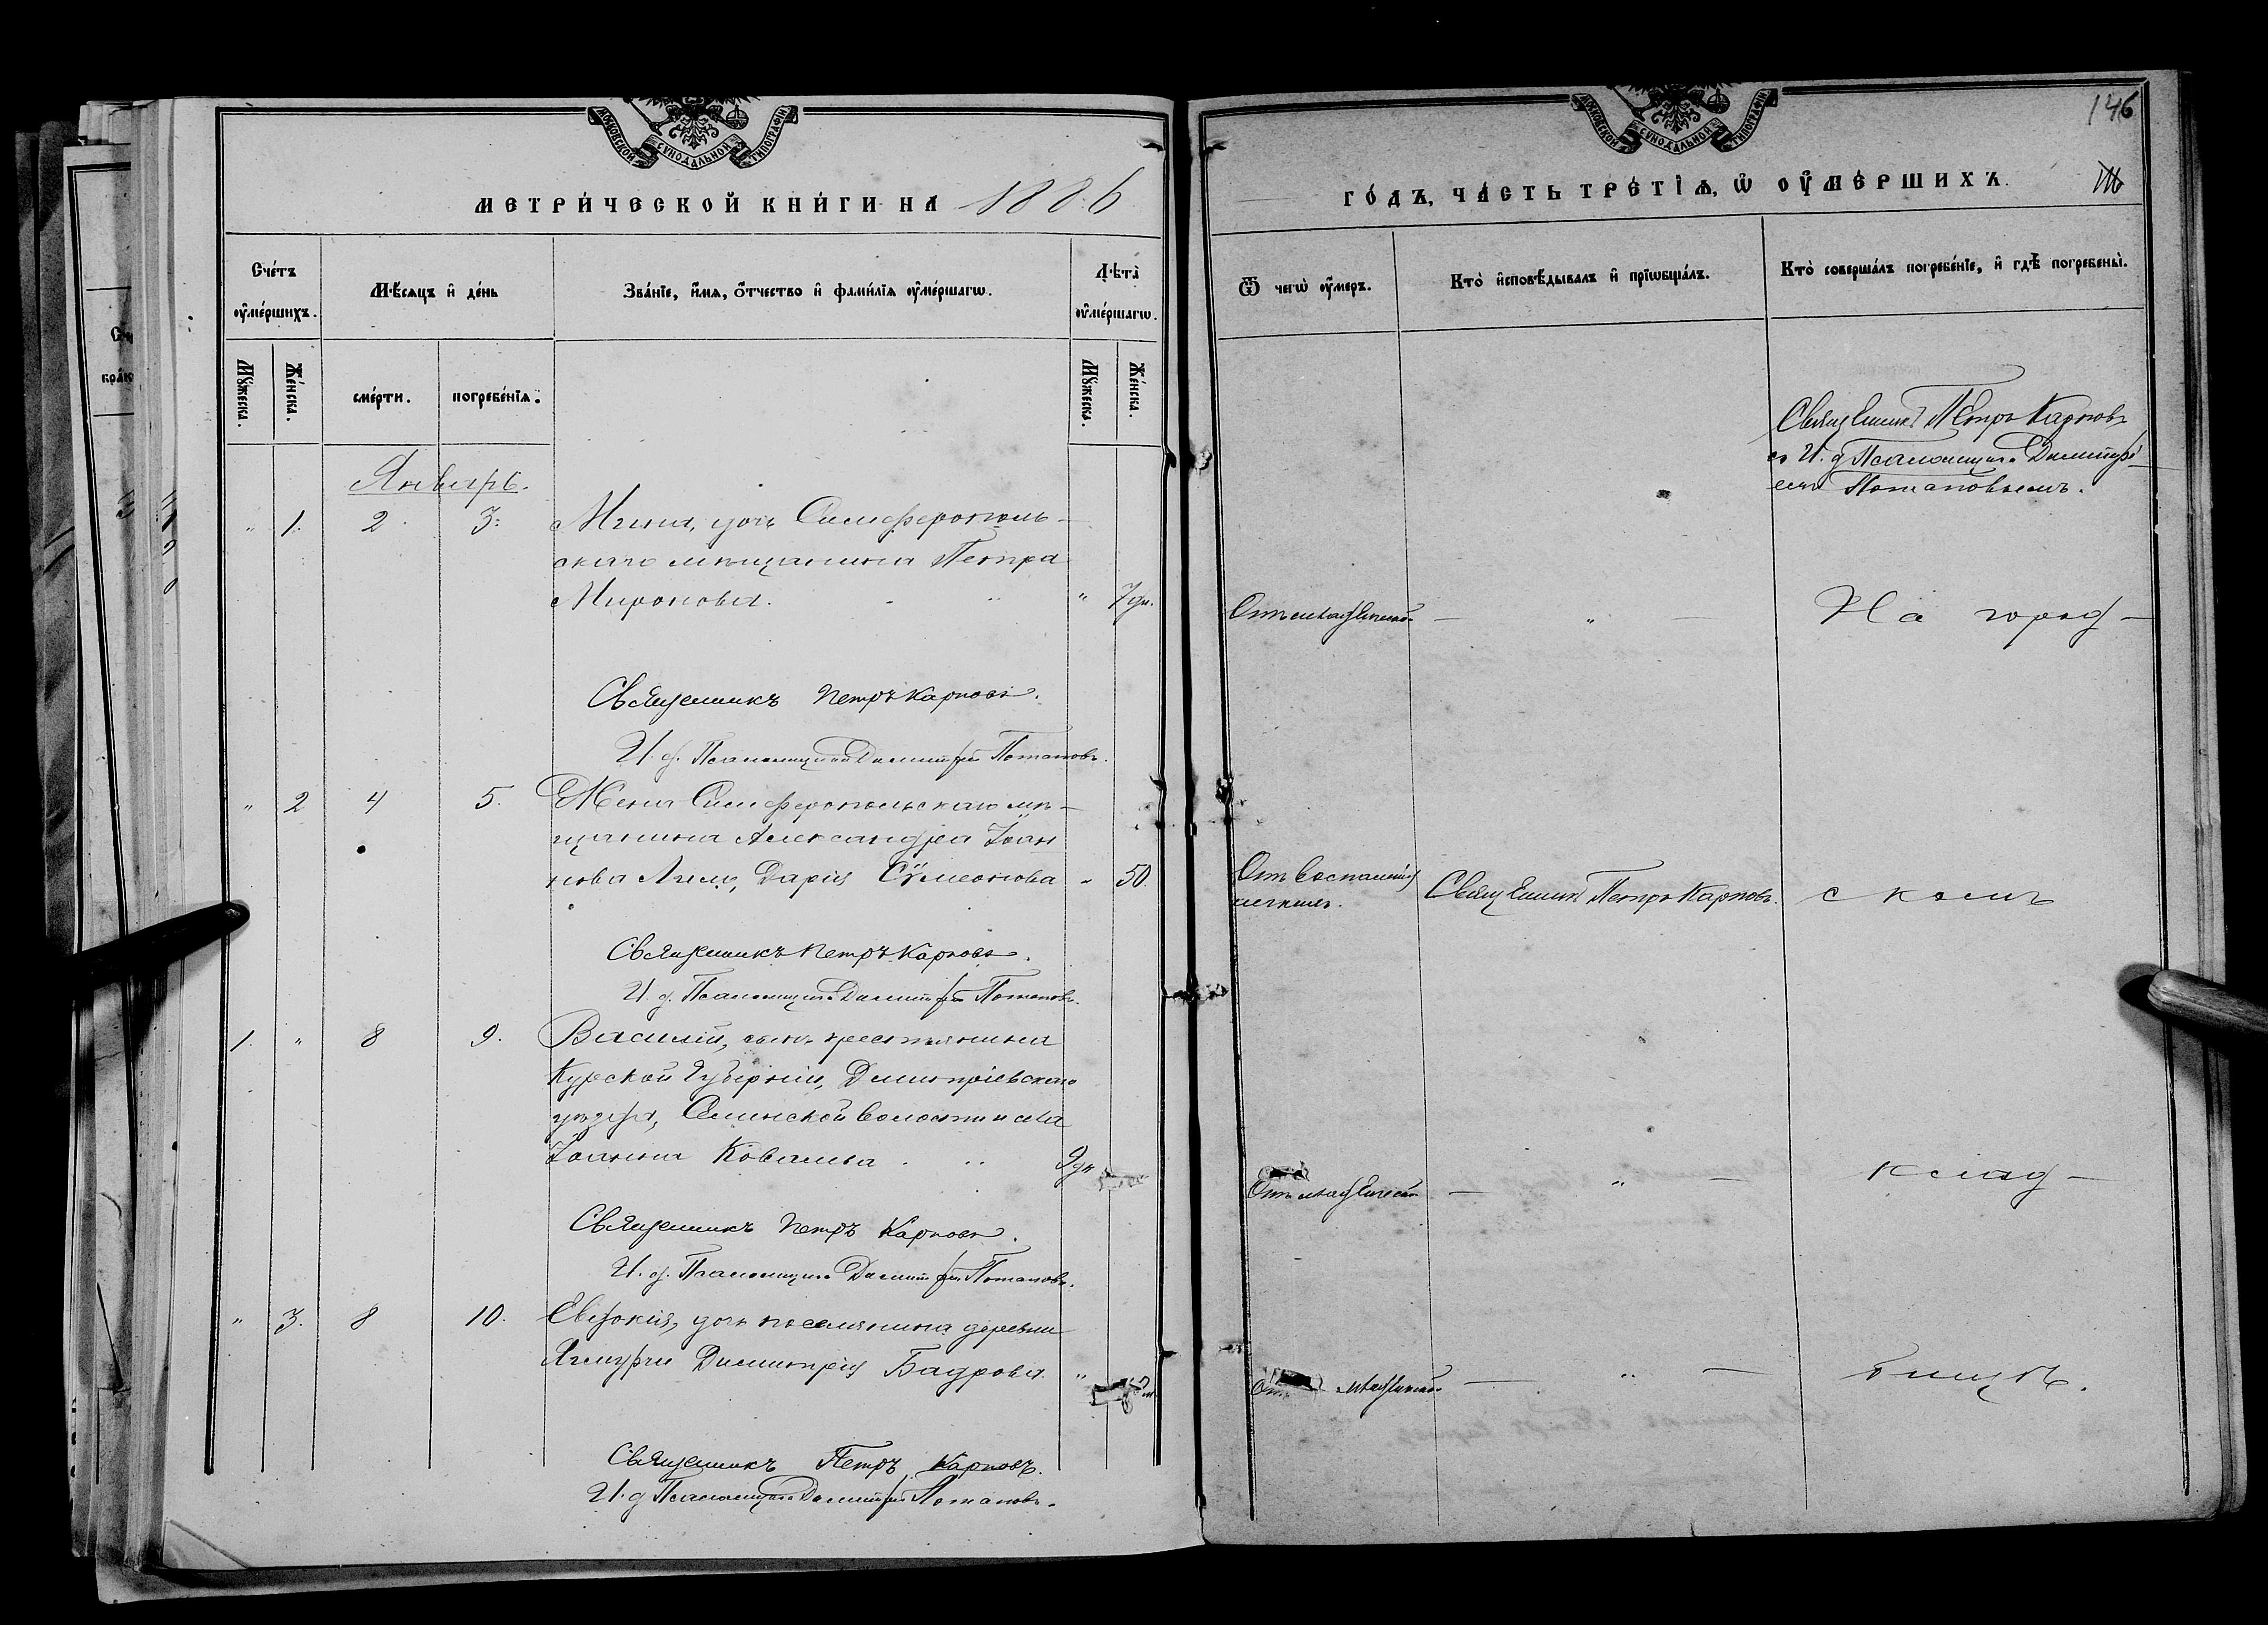 МОСКОВСКОЙ СѴНОДАЛЬНОЙ ТИПОГРАФІИ
МЕТРИ́ЧЕСКОЙ КНИ́ГИ НА 1886
Сче́тъ оу҆ме́ршихъ.
Мѣ́сяцъ и҆ де́нь
Зва́нїе, и҆́мѧ, ѻ҆́тчество и҆ фами́лїѧ оу҆ме́ршагѡ.
Лѣ́та оу҆ме́ршагѡ.
Мꙋ́жеска.
Же́нска.
сме́рти.
погребе́нїѧ.
Мꙋ́жеска.
Же́нска.
Январь.
" 1. 2. 3. дочь Симферополь-
скаго мѣщанина Петра
Миронова. " 7 дн.
Священникъ Петръ Карповъ.
И. д. Псаломщика Димитрій Потаповъ.
" 2 4 5. Жена Симферопольскаго мѣ-
щанина Александра Іоан
нова Дарія Сѵмеонова " 50.
Священникъ Петръ Карповъ.
И. д. Псаломщика Димитрій Потаповъ.
1. " 8 9. Василій, сынъ крестьянина
Курской Губерніи, Дмитріевскаго
уѣзда, волости и села
Іоанна Ковалева 9 дн
Священникъ Петръ Карповъ.
И. д. Псаломщика Димитрій Потаповъ.
" 3. 8 10. Евдокія, дочь поселянина деревни
Димитрія Бадрова. "
Священникъ Петръ Карповъ.
И. д. Псаломщика Димитрій Потаповъ.
МОСКОВСКОЙ СѴНОДАЛЬНОЙ ТИПОГРАФІИ
146
ГО́ДЪ, ЧА́СТЬ ТРЕ́ТЇѦ, Ѡ҆ ОУ҆МЕ́РШИХЪ.
Ѿ чегѡ̀ оу҆́меръ.
Кто̀ и҆сповѣ́дывалъ и҆ прїѡбща́лъ.
Кто̀ соверша́лъ погребе́нїе, и҆ гдѣ̀ погребены̀.
Священникъ Петръ Карповъ
съ И. д Псаломщика Димитрі-
емъ Потаповымъ.
Отъ младенческой — " — На город —
Отъ воспаленія
легкихъ. Священникъ Петръ Карповъ. скомъ
Отъ младенческой — " — клад —
Отъ младенческой — " — бищѣ.